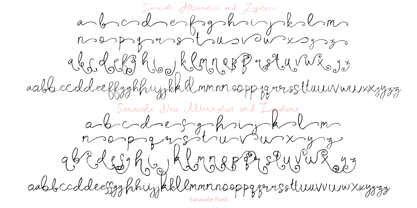 Saravale Alternative and Ligature
a b c d e f g h i j k l m
n o p q r s t u v w x y z
a b c d e f g h i j k l m n o p q r s t u v w x y z
aabbccddeeffgghhiijjkkllmmnnooppqqrrssttuuvvwwxxyyzz
Saravale New Alternative and Ligature
a b c d e f g h i j k l m
n o p q r s t u v w x y z
a b c d e f g h i j k l m n o p q r s t u v w x y z
aabbccddeeffgghhiijjkkllmmnnooppqqrrssttuuvvwwxxyyzz
Saravale Font